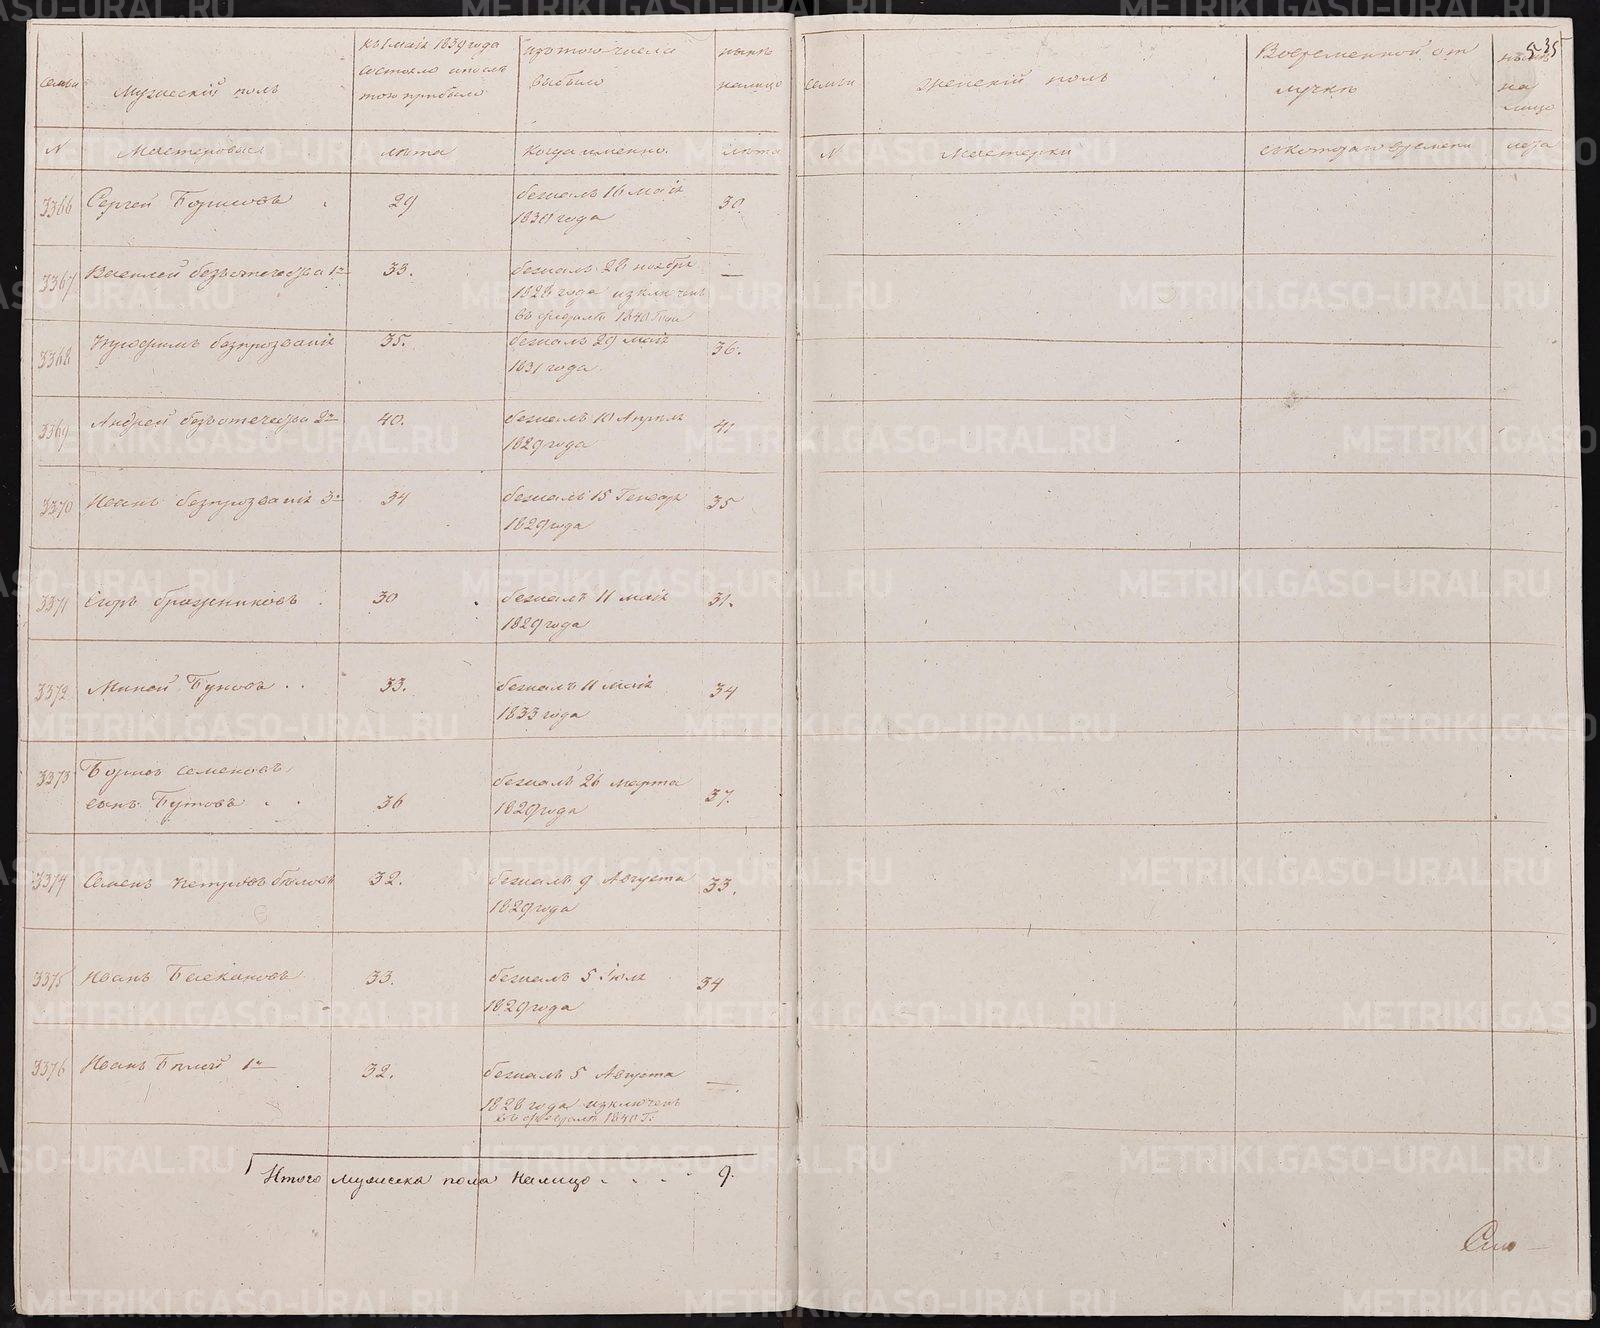 семьи
Мужескій полъ
къ 1 маія 1839 года
состояло и послѣ
того прибыло
изъ того числа
выбыло
нынѣ
налицо
N
Мастеровые
лѣта
когда именно.
лѣта
3366 Сергей Борисовъ 29 бежалъ 16 маія 30.
1830 года
3367 Василей безъотечества 1й 33. бежалъ 28 ноября —
1828 года изключенъ
въ февралѣ 1840 Года
3368 безпрозванія 35. бежалъ 29 маія 36.
1831 года
3369 Андрей безъотечества 2й 40. бежалъ 10 Апреля 41
1829 года
3370 Иванъ безпрозванія 3й 34 бежалъ 15 Генваря 35
1829 года
3371 Егоръ бражниковъ 30 бежалъ 11 маія 31.
1829 года
3372 Миней 33. бежалъ 11 маія 34
1833 года
3373 Борисъ семеновъ
сынъ Бутовъ 36 бежалъ 26 марта 37.
1829 года
3374 Семенъ петровъ бѣловъ 32. бежалъ 9 Августа 33.
1829 года
3375 Иванъ Баскаковъ 33. бежалъ 5 Іюля 34
1829 года
3376 Иванъ Белой 1й 32. бежалъ 5 Августа —
1828 года изключенъ
въ февралѣ 1840 Г:
Итого мужеска пола налицо . . . . 9.
535
семьи
Женскій полъ
Вовременной от
лучкѣ
нынѣ
на
лицо
N
Мастерки
съкотораго времени
лета
METRIKI.GASO-URAL.RU